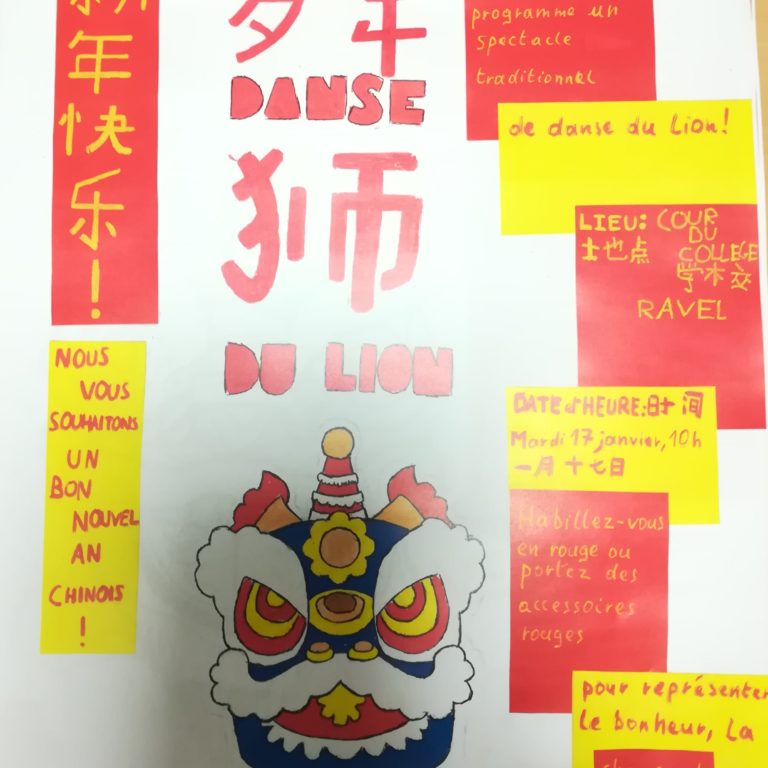 年
快
乐
!
NOUS
VOUS
SOUHAITONS
UN
BON
NOUVEL
AN
CHINOIS
!
DANSE
狮
DU LION
programme un
spectacle
traditionnel
de danse du Lion!
LIEU: COUR
DU
地点 COLLEGE
学校
RAVEL
DATE & HEURE:时间
Mardi 17 janvier, 10h
一月十七日
Habillez-vous
en rouge ou
portez des
accessoires
rouges
pour représenter
le bonheur, la